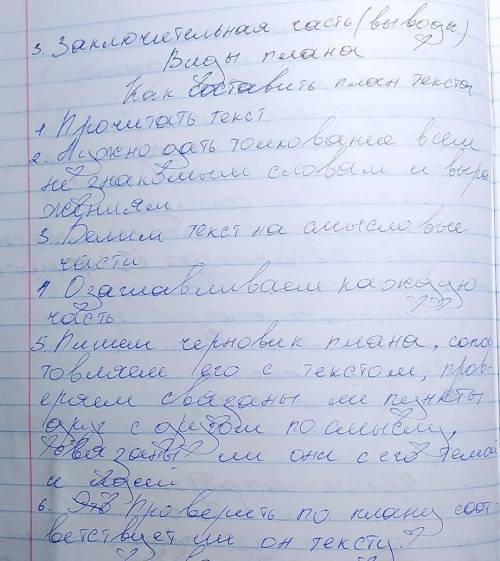 3. Заключительная часть (выводы)
Виды плана
Как составить план текста
1. Прочитать текст
2. Нужно дать толкование всем
не знакомым словам и выра
жениям.
3. Делим текст на смысловые
части
4. Озаглавливаем каждую
часть
5. Пишем черновик плана, сопо
товляем его с текстом, пров-
еряем связаны ли пункты
друг с другом по смыслу,
связаны ли они с его темой
и идеей
6. Это Проверить по плану соот
ветствует ли он тексту?